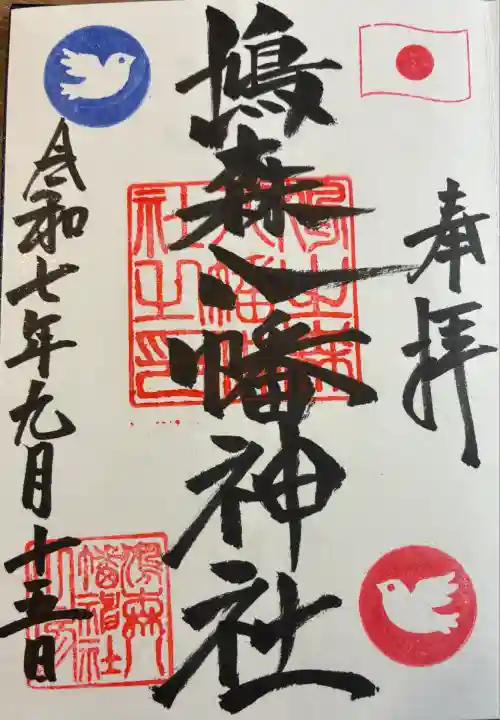 奉拝
鳩森八幡神社
令和七年九月十五日
鳩之森八幡神社之印
鳩森八幡神社